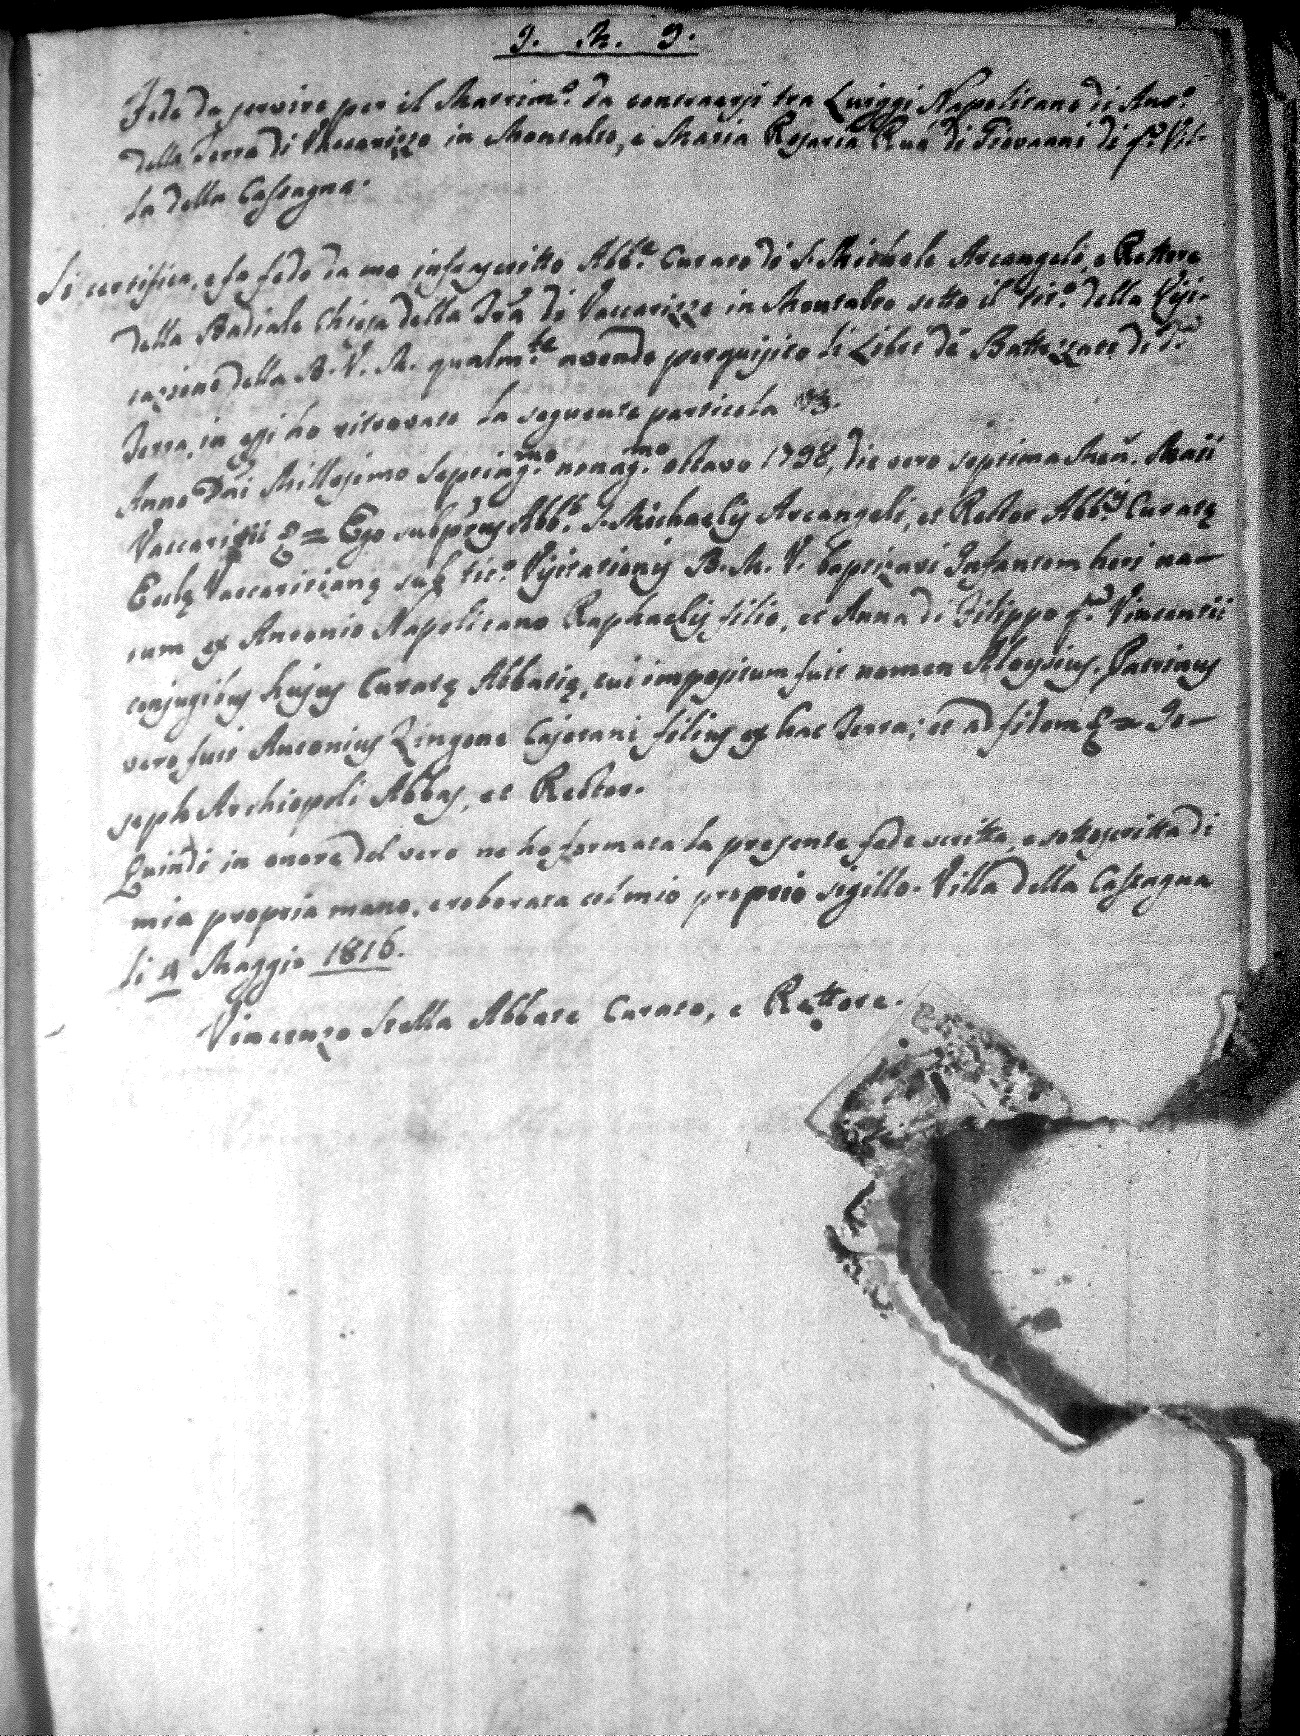 J. M. J.
Fede da servire per il Matrim.º da contraersi tra Luiggi Napolitano di Ant.º
della Terra di Vaccarizzo in Montalto, e Maria Rosaria Rua di Giovanni di q.ª Vil-
la della Castagna.
Si certifica, e fa fede da me infrascritto Abb.e Curato di S. Michele Arcangelo, e Rettore
della Badiale Chiesa della Trâ di Vaccarizzo in Montalto sotto il tit.º della Visi-
tazione della B. V. M. qualm.te avendo perquisito li Libri de' Battezzati di d.ª
Terra, in essi ho ritrovato la seguente particola
Anno Dñi Millesimo Septing.mo nonag.mo ottavo 1798, die vero septima Meñ. Maii
Vaccaritii = Ego Abb. S. Michaelis Arcangeli, et Rector Abb.s Curatę
Eccłę Vaccaritianę sub tit.º Visitationis B. M. V. baptizavi Infantem heri na-
tum ex Antonio Napolitano Raphaelis filio, et Anna di Filippo q.m Vincentii
conjugibus hujus Curatę Abbatię, cui impositum fuit nomen Aloysius. Patrinus
vero fuit Antonius Zingone Cajetani filius ex hac Terra; et ad fidem = Jo-
seph Archiopoli Abbas, et Rector.
Quindi in onore del vero ne ho formata la presente fede scritta, e sottoscritta di
mia propria mano, e roborata col mio proprio sigillo. Villa della Castagna
li 4 Maggio 1816.
Vincenzo Stella Abbate Curato, e Rettore.